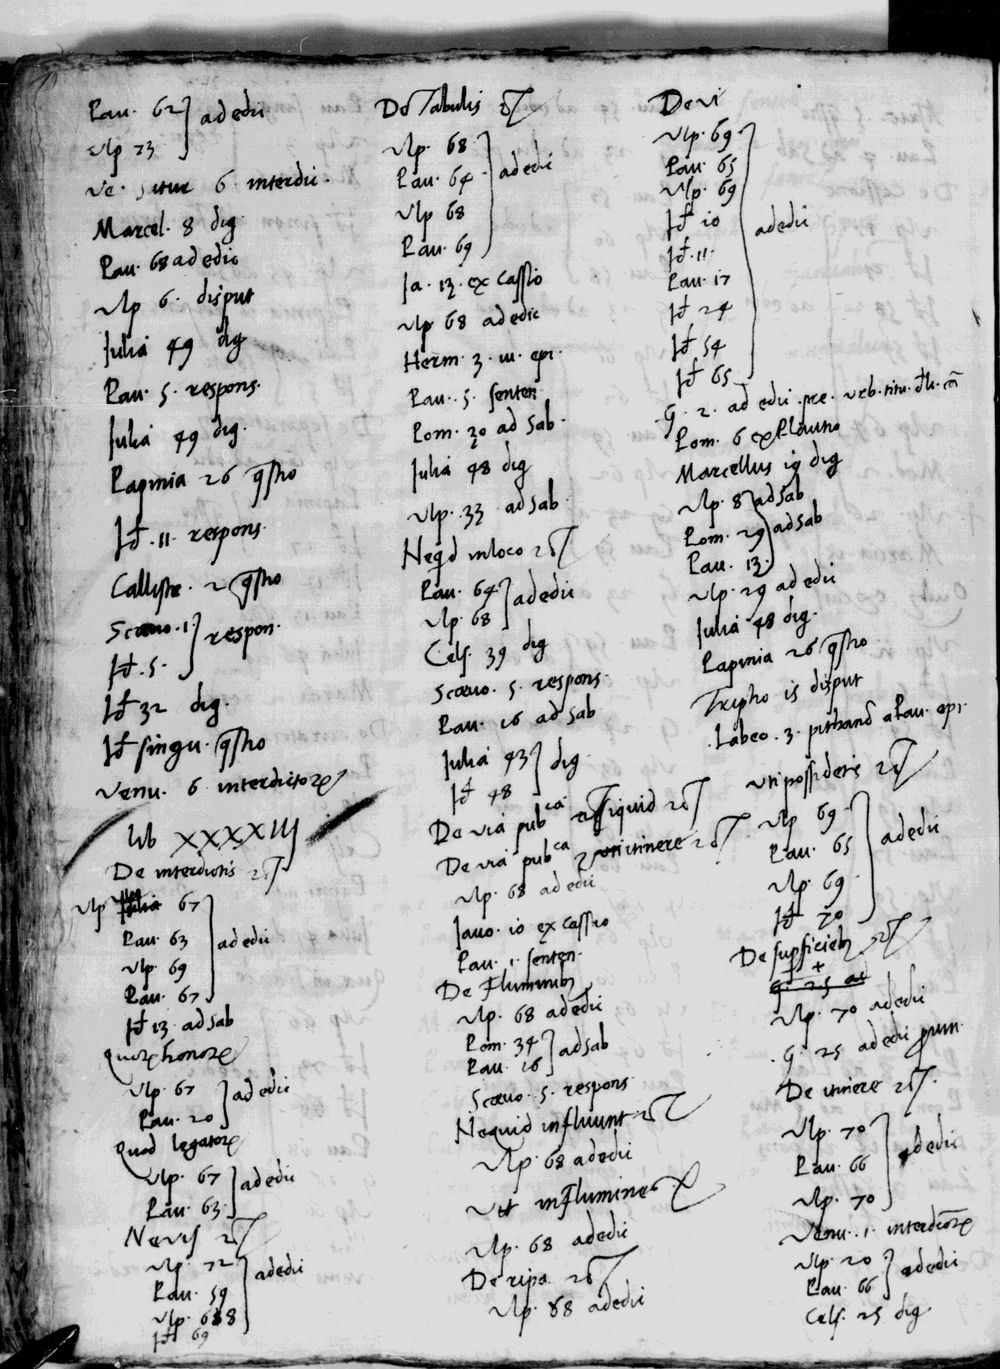 Pau. 62 ] ad edii
Vlp 73
Ve. Satur 6 interdii.
Marcel. 8 dig
Pau. 68 ad edic
Vlp 6. disput
Julia 49 dig
Pau. 5. respons.
Julia 49 dig.
Papinia 26 q̃stio
Jd. 11. respons.
Callistr. 2 q̃stio
Scævo. 1 ] respon.
Jd. 5.
Jd 32 dig.
Jd singu. q̃stio
Venu. 6 interdictorꝝ
lib XXXXIII
De interdictis
Vlp 67
Pau. 63 ] ad edii
Vlp. 69
Pau. 67
Jd 13. ad Sab
quorꝝ honorꝝ
Vlp. 67 ] ad edii
Pau. 20
Quod legatorꝝ
Vlp. 67 ] ad edii
Pau. 63
Ne vis
Vlp. 72 ] ad edii
Pau. 59
Vlp. 68
Jd 69
De Tabulis
Vlp. 68 ] ad edii
Pau. 64
Vlp 68
Pau. 69
Ja. 13. ex Cassio
Vlp 68 ad edic
Herm. 3. iu. epi.
Pau. 5. senten
Pom. 30 ad Sab.
Julia 48 dig
Vlp. 33 ad Sab
Neq̃d in loco
Pau. 64 ] ad edii
Vlp. 68
Cels. 39 dig
Scævo. 5. respons.
Pau. 16 ad Sab
Julia 43 ] dig
Jd 48
De via pubca siquid
De via pubca itinere
Vlp. 68 ad edii
Javo. 10 ex Cassio
Pau. 1. senten.
De Fluminib
Vlp. 68 ad edii
Pom. 34 ] ad Sab
Pau. 16
Scævo. 5. respons
Nequid in fluuint
Vlp. 68 ad edii
Vt in Flumine
Vlp. 68 ad edii
De ripa
Vlp. 68 ad edii
De vi
Vlp. 69 ] ad edii
Pau. 65
Vlp. 69
Jd 10
Jd. 11.
Pau. 17
Jd 24
Jd 54
Jd 65
G. 2. ad edii. pre. vrb. titu.
Pom. 6 ex Plautio
Marcellus 19 dig
Vlp. 8 ad Sab
Pom. 29 ] ad Sab
Pau. 13.
Vlp. 29 ad edii
Julia 48 dig.
Papinia 26 q̃stio
Tripho 15 disput
Labeo. 3. pithanō a Pau. epi.
Vti possidetis
Vlp 69 ] ad edii
Pau. 65
Vlp. 69
Jd 70
De supficieb
G. 25 ad
Vlp. 70 ad edii
G. 25 ad edii
De itinere
Vlp. 70 ] ad edii
Pau. 66
Vlp. 70
Venu. 1. interdictorꝝ
Vlp. 20 ] ad edii
Pau. 66
Cels. 25 dig